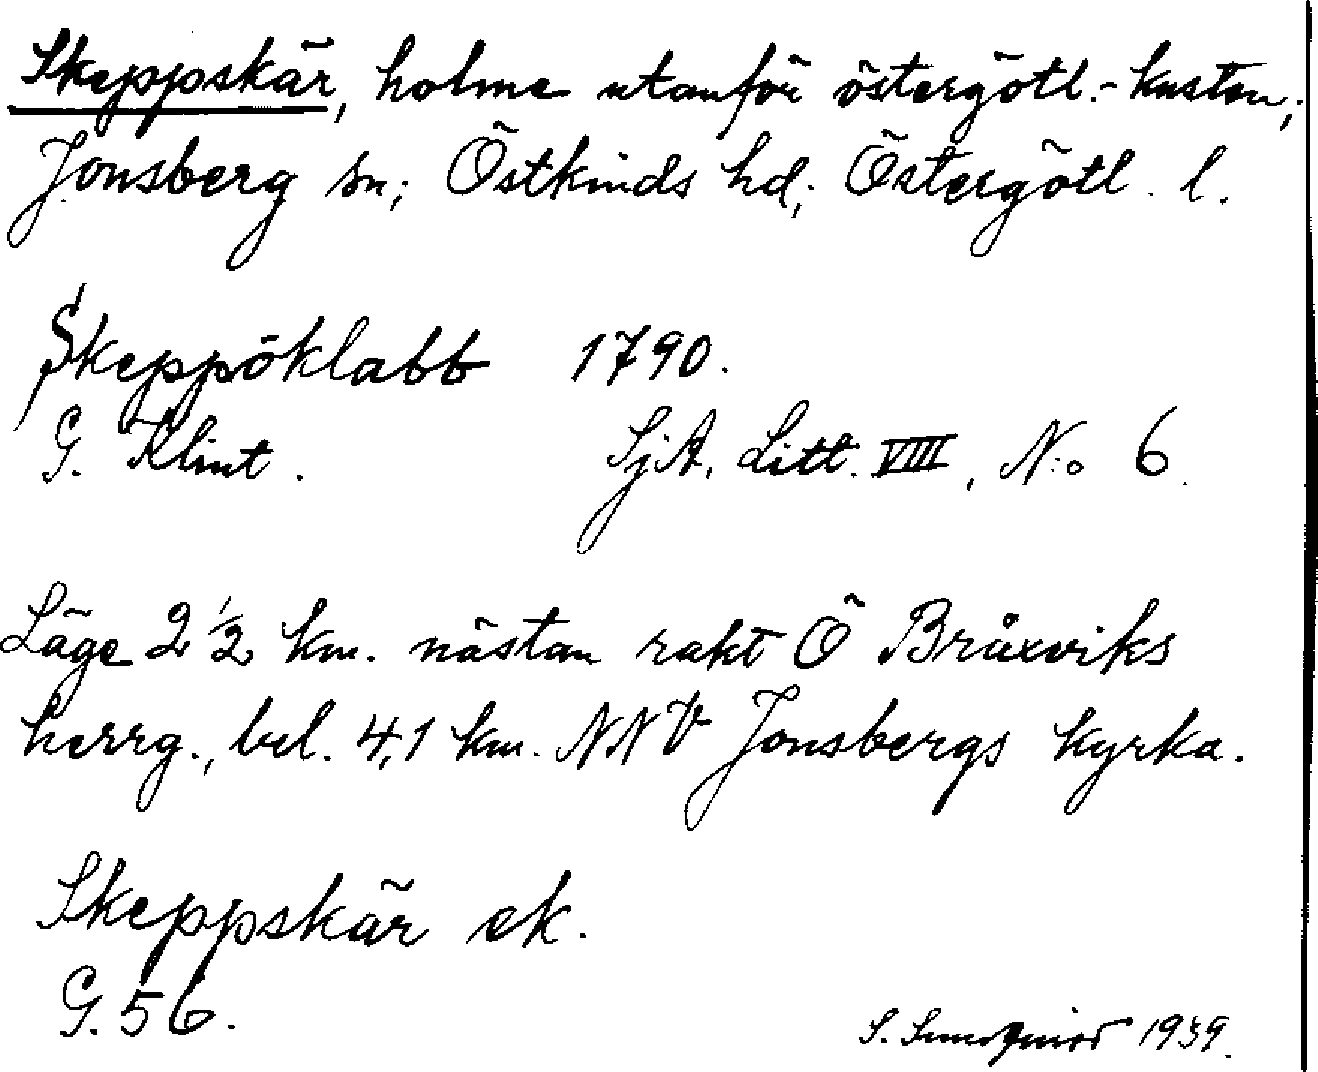 Skeppskär, holme utanför östergötl.-kusten;
Jonsberg sn; Östkinds hd; Östergötl. l.
Skeppöklabb 1790.
G. Klint. SjA. Litt. VIII, N:o 6.
Läge 2 1/2 km. nästan rakt Ö Bråxviks
herrg., bel. 4,1 km. NNV Jonsbergs kyrka.
Skeppskär ek.
G. 56.
S. 1939.